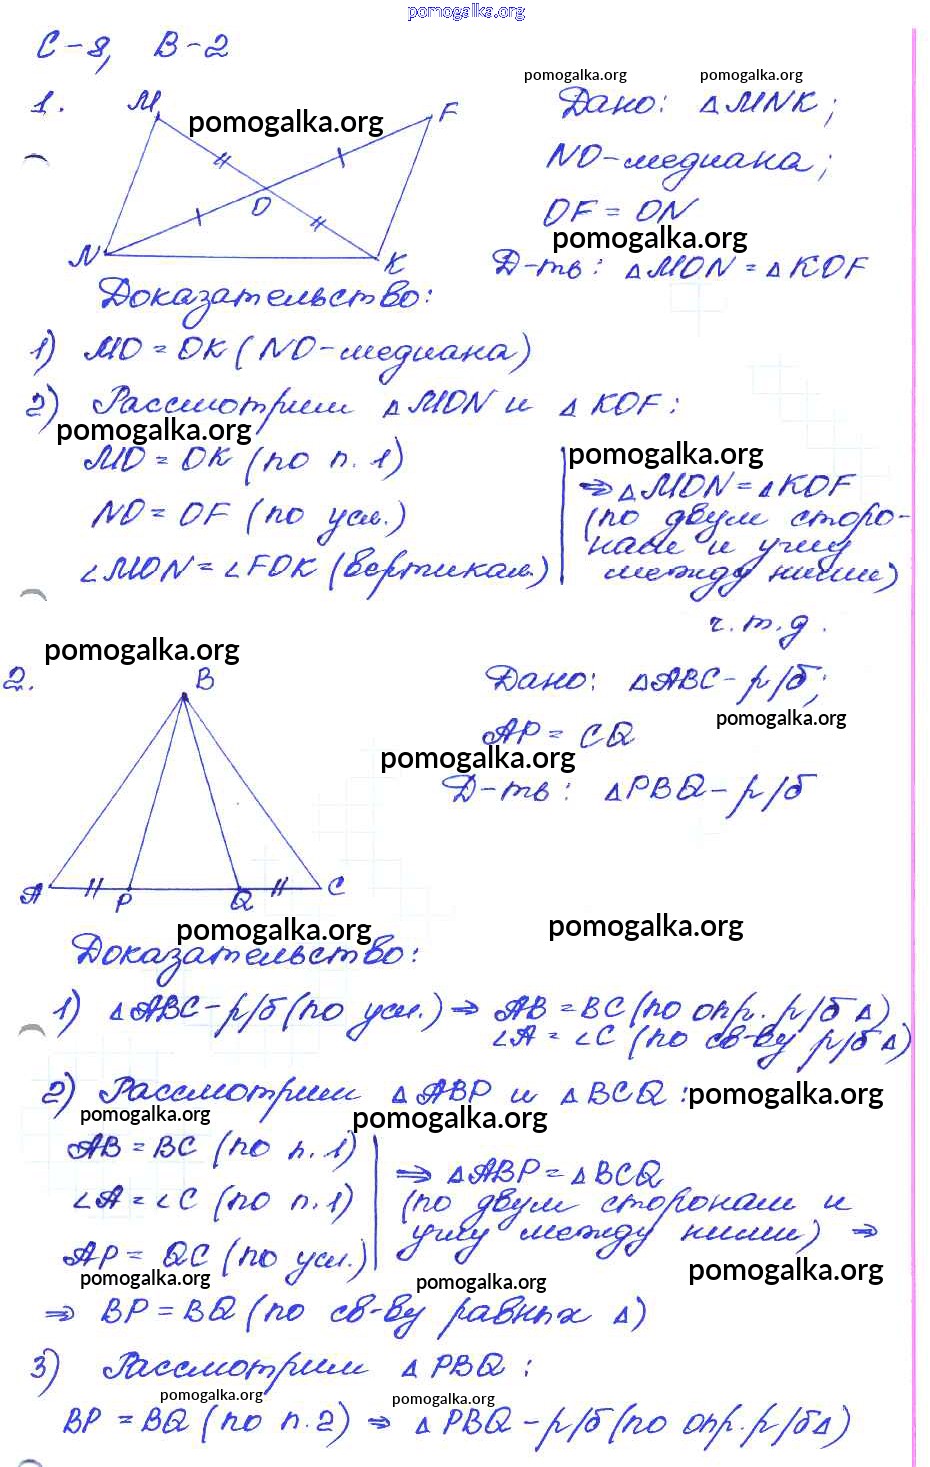 pomogalka.org
С-8, В-2
pomogalka.org pomogalka.org
1. M F Дано: △MNK;
pomogalka.org
NO-медиана;
O
OF = ON
pomogalka.org
N K Д-ть: △MON = △KOF
Доказательство:
1) MO = OK (NO-медиана)
2) Рассмотрим △MON и △KOF:
pomogalka.org
pomogalka.org
MO = OK (по п. 1)
⇒ △MON = △KOF
NO = OF (по усл.)
(по двум сторо-
нам и углу
∠MON = ∠FOK (вертикал.)
между ними)
ч.т.д.
pomogalka.org
2. B Дано: △ABC - р/б;
pomogalka.org
AP = CQ
pomogalka.org
Д-ть: △PBQ - р/б
A P Q C
pomogalka.org pomogalka.org
Доказательство:
1) △ABC - р/б (по усл.) ⇒ AB = BC (по опр. р/б △)
∠A = ∠C (по св-ву р/б △)
2) Рассмотрим △ABP и △BCQ:
pomogalka.org
pomogalka.org pomogalka.org
AB = BC (по п. 1)
⇒ △ABP = △BCQ
∠A = ∠C (по п. 1)
(по двум сторонам и
углу между ними) ⇒
AP = QC (по усл.)
pomogalka.org pomogalka.org pomogalka.org
⇒ BP = BQ (по св-ву равных △)
3) Рассмотрим △PBQ:
pomogalka.org pomogalka.org
BP = BQ (по п. 2) ⇒ △PBQ - р/б (по опр. р/б △)